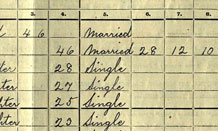 3. 4. 5. 6. 7. 8.
46 Married
46 Married 28 12 10
ter 28 Single
ter 27 Single
ter 25 Single
hter 23 Single